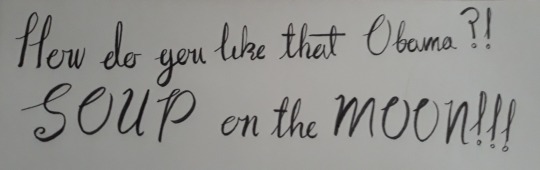 How do you like that Obama?!
SOUP on the MOON!!!